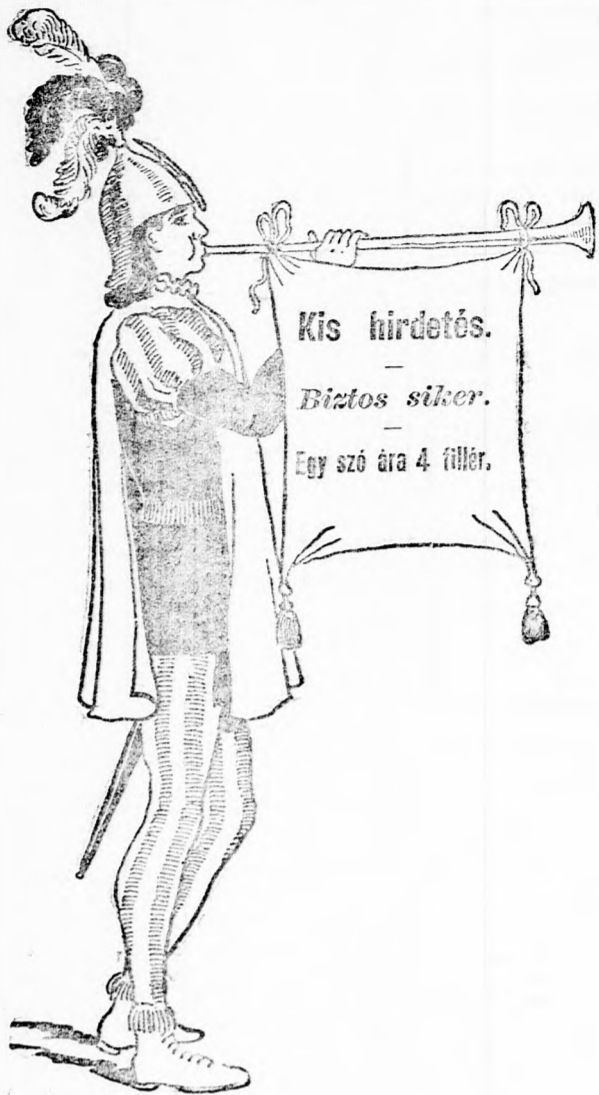 Kis hirdetés.
—
Biztos siker.
—
Egy szó ára 4 fillér.